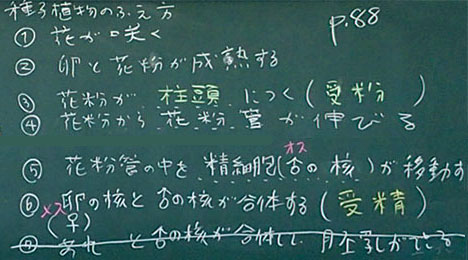 種子植物のふえ方
p.88
① 花が咲く
② 卵と花粉が成熟する
③ 花粉が 柱頭 につく(受粉)
④ 花粉から 花粉管 が伸びる
オス
⑤ 花粉管の中を 精細胞(♂の核)が移動す
⑥ 卵の核と♂の核が合体する(受精)
メス
(♀)
⑦ と♂の核が合体して、ができる